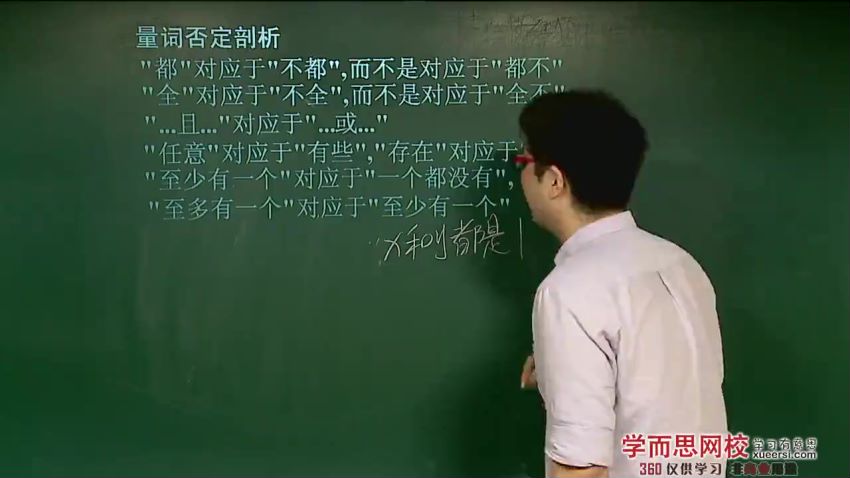 量词否定剖析
"都"对应于"不都",而不是对应于"都不"
"全"对应于"不全",而不是对应于"全不"
"...且..."对应于"...或..."
"任意"对应于"有些","存在"对应于
"至少有一个"对应于"一个都没有",
"至多有一个"对应于"至少有一个"
x和y都是1
学而思网校
学习有意思
xueersi.com
360 仅供学习